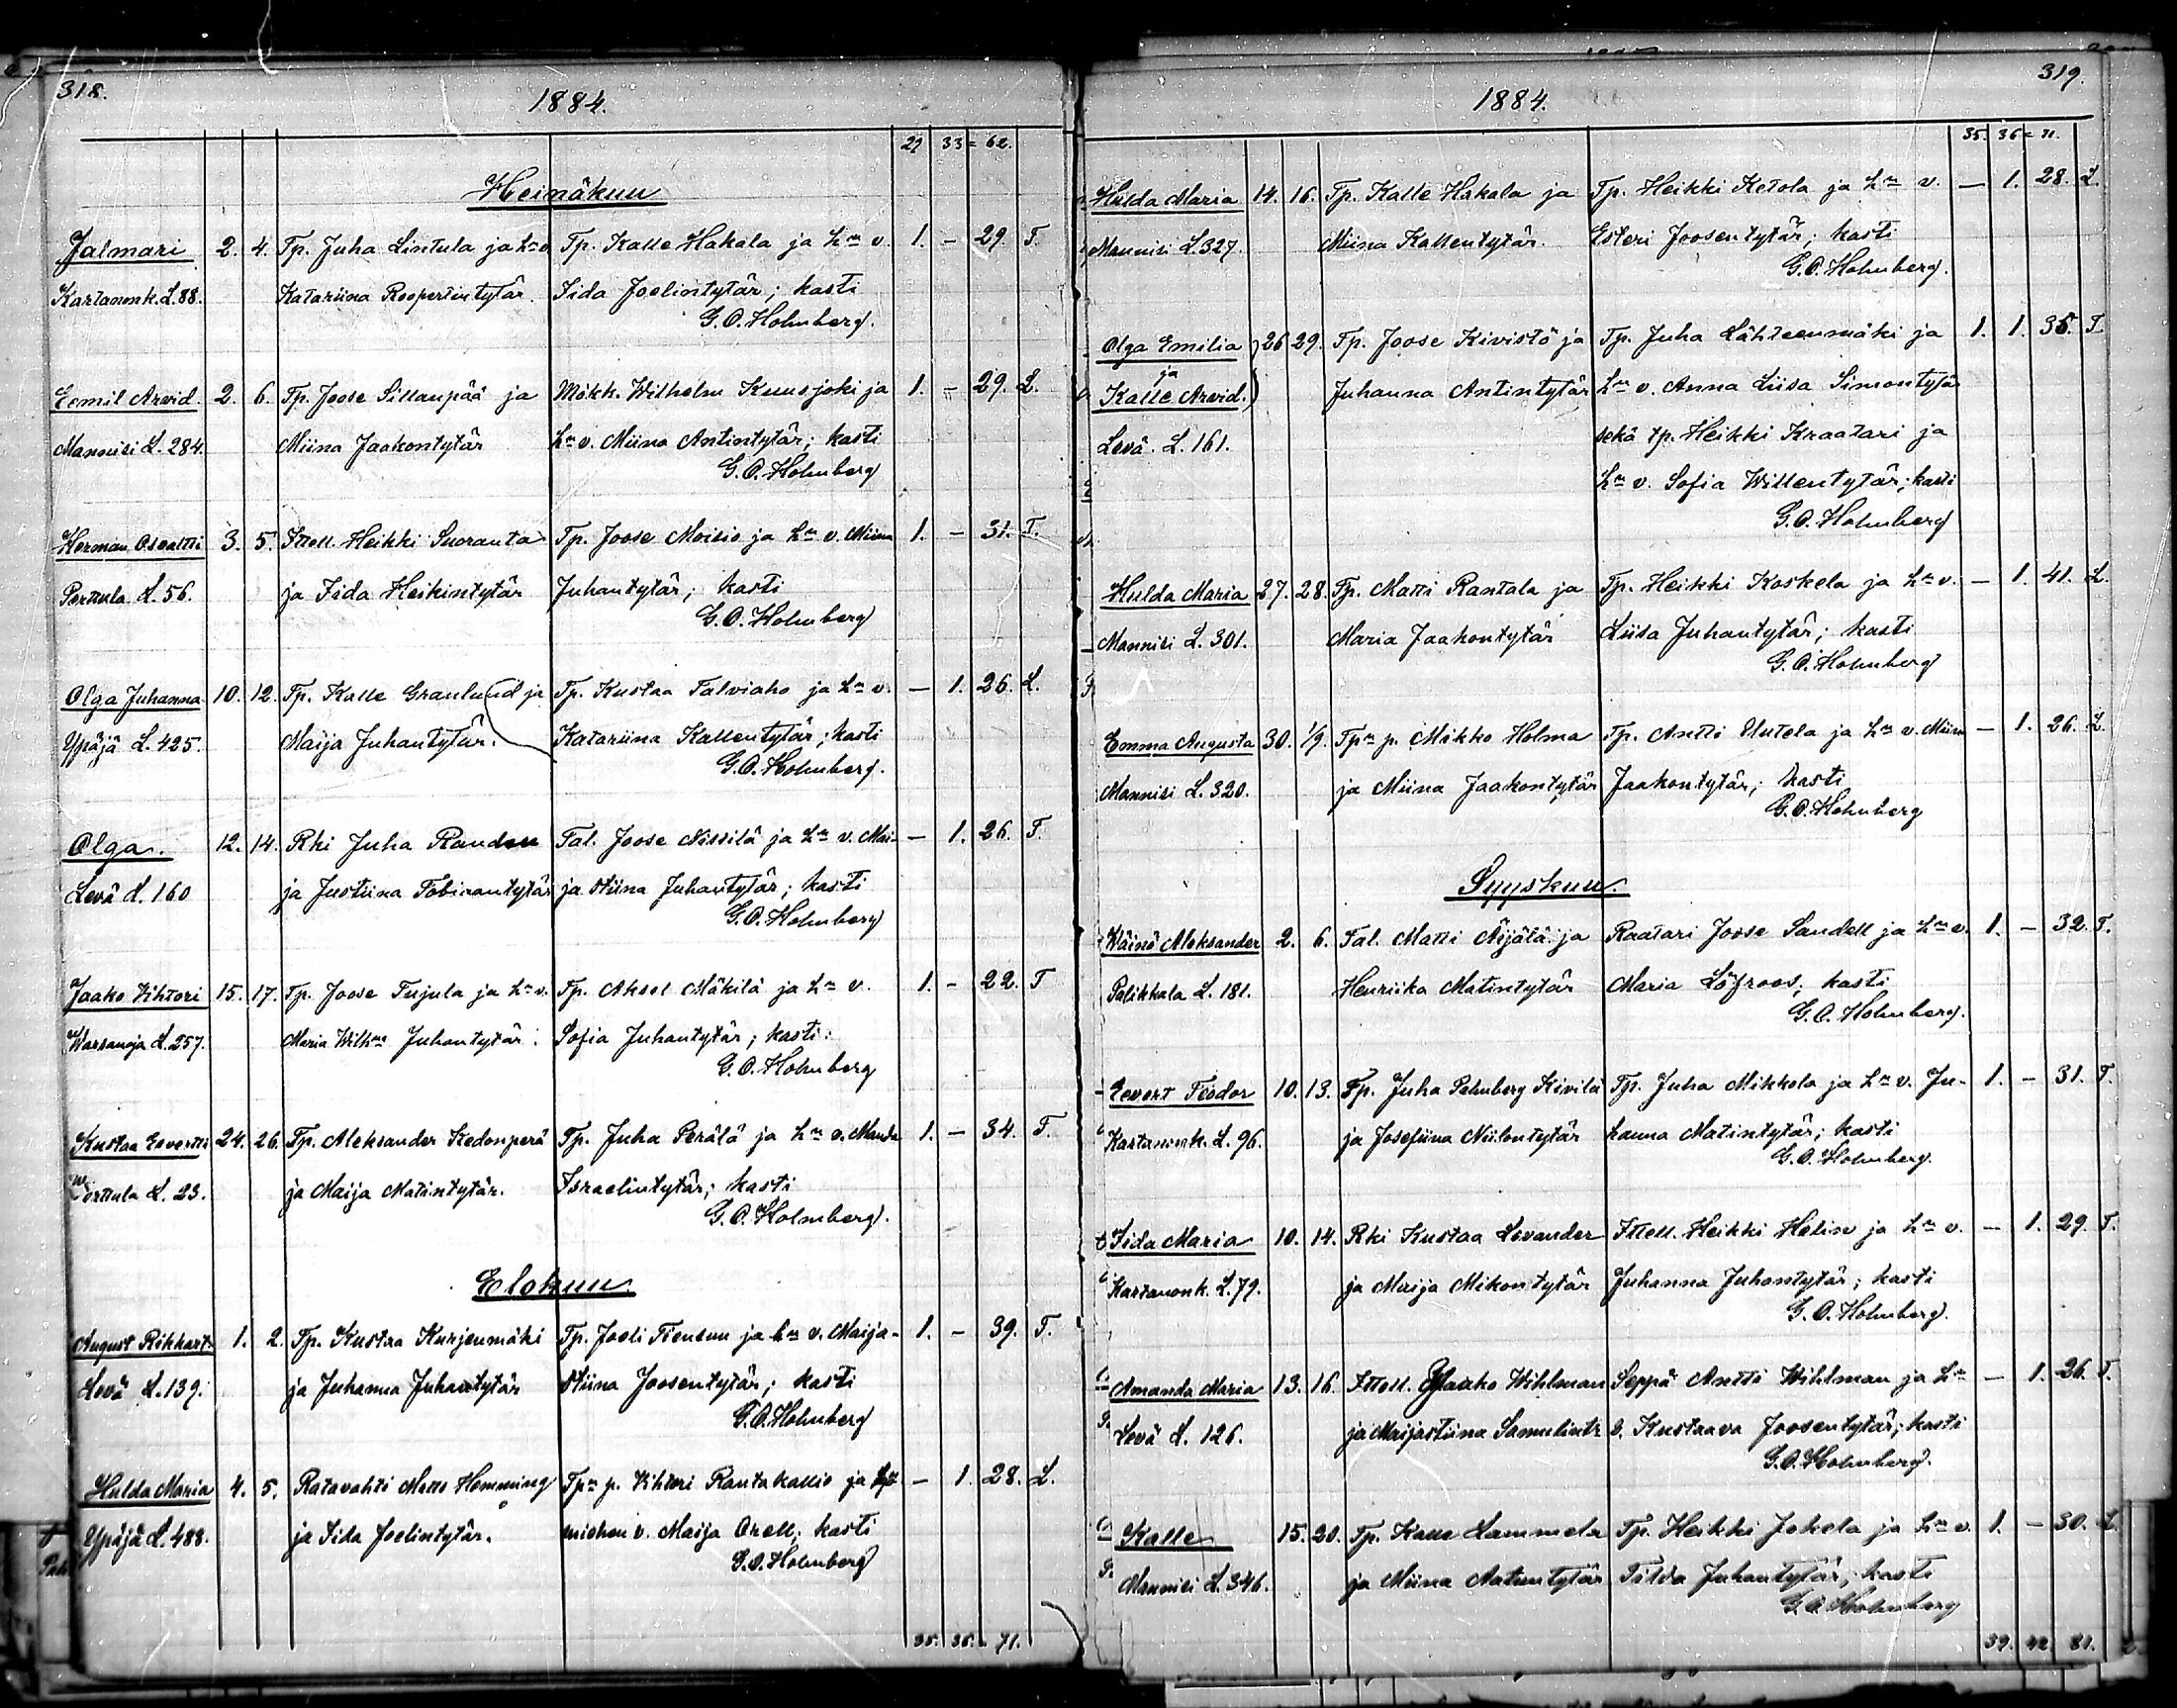 318.
1884.
29 33 = 62.
Heinäkuu
Jalmari 2. 4. Tp. Juha Lintula ja hn v. Tp. Kalle Hakala ja hn v. 1. – 29. T.
Kartanonk. L. 88. Katariina Roopertintytär. Iida Joelintytär; kasti
G.O. Holmberg.
Eemil Arvid. 2. 6. Tp. Joose Sillanpää ja Mökk. Wilhelm Kuusjoki ja 1. – 29. L.
Mannisi L. 284. Miina Jaakontytär hn v. Miina Antintytär; kasti
G.O. Holmberg
Herman Oskartti 3. 5. Ittell. Heikki Suoranta Tp. Joose Moisio ja hn v. Miina 1. – 31. T.
Perttula L. 56. ja Iida Heikintytär Juhantytär; kasti
G.O. Holmberg
Olga Juhanna 10. 12. Tp. Kalle Granlund ja Tp. Kustaa Talviaho ja hn v. – 1. 26. L.
Ypäjä L. 425. Maija Juhantytär. Katariina Kallentytär; kasti
G.O. Holmberg.
Olga. 12. 14. Rki Juha Randen Tal. Joose Nissilä ja hn v. Mai- – 1. 26. T.
Levä L. 160 ja Justiina Tobiaantytär ja Stiina Juhantytär; kasti
G.O. Holmberg
Jaako Vihtori 15. 17. Tp. Joose Tujula ja hn v. Tp. Aksel Mäkilä ja hn v. 1. – 22. T
Warsanoja L. 257. Maria Wilhna Juhantytär. Sofia Juhantytär; kasti:
G.O. Holmberg
Kustaa Eevertti 24. 26. Tp. Aleksander Kedonperä Tp. Juha Perälä ja hn v. Manda 1. – 34. T.
Perttula L. 23. ja Maija Matintytär. Israelintytär; kasti
G.O. Holmberg.
Elokuu.
August Rikhart 1. 2. Tp. Kustaa Kurjenmäki Tp. Joeli Tiensuu ja hn v. Maija- 1. – 39. T.
Levä L. 139. ja Juhanna Juhantytär Stiina Joosentytär; kasti
G.O. Holmberg
Hulda Maria 4. 5. Ratavahti Matti Hemming Tpn p. Vihtori Rantakallio ja – 1. 28. L.
Ypäjä L. 488. ja Iida Joelintytär. miehen v. Maija Orell; kasti
G.O. Holmberg
35. 36. 71.
319.
1884.
35. 36 = 71.
Hulda Maria 14. 16. Tp. Kalle Hakala ja Tp. Heikki Ketola ja hn v. – 1. 28. L.
Mannisi L. 327. Miina Kallentytär. Esteri Joosentytär; kasti
G.O. Holmberg.
Olga Emilia 26 29. Tp. Joose Kivistö ja Tp. Juha Lähteenmäki ja 1. 1. 35. T.
ja
Kalle Arvid. Juhanna Antintytär hn v. Anna Liisa Simontytär
Levä L. 161. sekä tp. Heikki Kraatari ja
hn v. Sofia Willentytär; kasti
G.O. Holmberg
Hulda Maria 27. 28. Tp. Matti Rantala ja Tp. Heikki Koskela ja hn v. – 1. 41. L.
Mannisi L. 301. Maria Jaakontytär Liisa Juhantytär; kasti
G.O. Holmberg
Emma Augusta 30. 1/9. Tpn p. Mikko Holma Tp. Antti Uutela ja hn v. Miina – 1. 26. L.
Mannisi L. 320. ja Miina Jaakontytär Jaakontytär; kasti
G.O. Holmberg
Syyskuu.
Wäinö Aleksander 2. 6. Tal. Matti Äijälä ja Raatari Joose Sandell ja hn v. 1. – 32. T.
Palikkala L. 181. Henriika Matintytär Maria Löfroos; kasti
G.O. Holmberg.
Eevert Teodor 10. 13. Tp. Juha Palmberg Kivilä Tp. Juha Mikkola ja hn v. Ju- 1. – 31. T.
Kartanonk. L. 96. ja Josefiina Niilontytär hanna Matintytär; kasti
G.O. Holmberg.
Iida Maria 10. 14. Rki Kustaa Levander Ittell. Heikki Helin ja hn v. – 1. 29. T.
Kartanonk. L. 79. ja Maija Mikontytär Juhanna Juhantytär; kasti
G.O. Holmberg.
Amanda Maria 13. 16. Ittell. Jaako Wihlman Seppä Antti Wihlman ja hn – 1. 26. T.
Levä L. 126. ja Maijastiina Samulintr v. Kustaava Joosentytär; kasti
G.O. Holmberg.
Kalle 15. 20. Tp. Kalle Lammela Tp. Heikki Jokela ja hn v. 1. – 30. L.
Mannisi L. 346. ja Miina Aatuntytär Tilda Juhantytär; kasti
G.O. Holmberg
39. 42. 81.